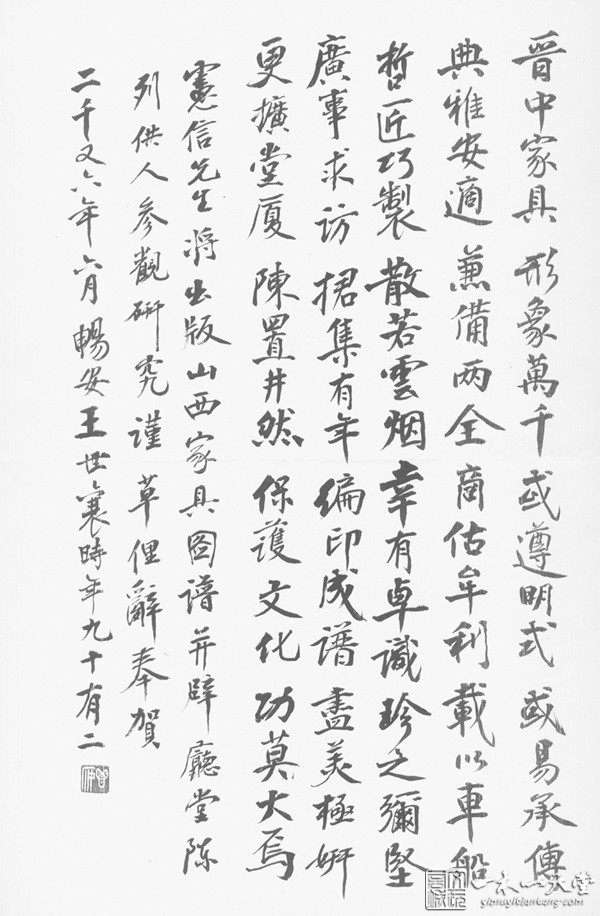 晋中家具 形象萬千 或遵明式 或易承傳
典雅安適 兼備两全 商估牟利 載以車船
哲匠巧製 散若雲烟 幸有卓識 珍之彌堅
廣事求访 捃集有年 编印成譜 盡美極妍
更擴堂厦 陳置井然 保護文化 功莫大焉
憲信先生将出版山西家具图谱并辟廳堂陈
列供人参觀研究谨草俚辭奉賀
二千又六年六月暢安王世襄時年九十有二
一木一天堂
yimuyitiantang.com